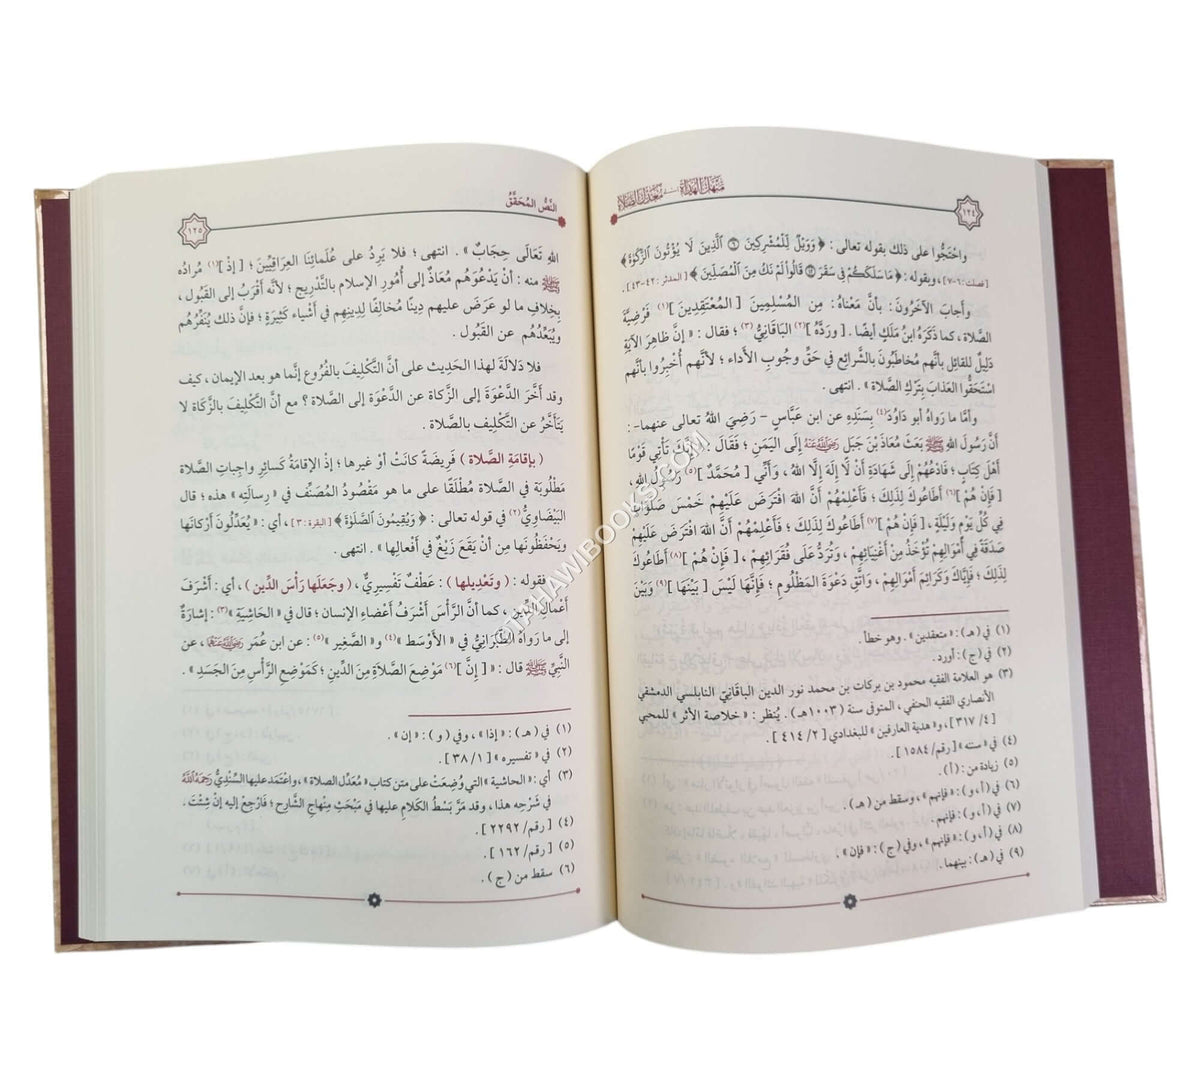 ١٢٤
مَنْهَلُ الهُدَاةِ إلى مُعَدِّلِ الصَّلاة
واحْتَجُّوا على ذلك بقوله تعالى : ﴿ وَوَيْلٌ لِّلْمُشْرِكِينَ ۝٦ ٱلَّذِينَ لَا يُؤْتُونَ ٱلزَّكَوٰةَ ﴾
[ فصلت : ٦-٧ ] ، وبقوله : ﴿ مَا سَلَكَكُمْ فِى سَقَرَ ۝٤٢ قَالُوا۟ لَمْ نَكُ مِنَ ٱلْمُصَلِّينَ ﴾ [ المدثر : ٤٢-٤٣ ] .
وأجابَ الآخَرُونَ : بأنَّ مَعْناهُ : مِن المُسْلِمِينَ [ المُعْتَقِدِينَ ](١) فَرْضِيَّةَ
الصَّلاة ، كما ذَكَرَهُ ابنُ مَلَكٍ أيضًا . [ ورَدَّهُ ](٢) الباقَانِيُّ (٣) ؛ فقال : « إنَّ ظاهِرَ الآيَةِ
دَلِيلٌ للقائِلِ بأنَّهم مُخاطَبُونَ بالشَّرائِعِ في حَقِّ وجُوبِ الأداء ؛ لأنَّهم أُخْبِرُوا بأنَّهم
اسْتَحَقُّوا العَذابَ بِتَرْكِ الصَّلاة » . انتهى .
وأمَّا ما رَواهُ أبو داوُدَ(٤) بِسَنَدِهِ عن ابن عَبَّاسٍ – رَضِيَ اللهُ تعالى عنهما – :
أنَّ رَسُولَ اللهِ ﷺ بَعَثَ مُعاذَ بْنَ جَبَلٍ رَضِيَ اللَّهُ عَنْهُ إلى اليَمَنِ ؛ فَقالَ : « إنَّكَ تَأْتِي قَوْمًا
أَهْلَ كِتابٍ ؛ فَادْعُهُمْ إلَى شَهَادَةِ أَنْ لَا إِلَهَ إِلَّا اللهُ ، وَأَنِّي [ مُحَمَّدٌ ](٥) رَسُولُ اللهِ ،
[ فَإِنْ هُمْ ](٦) أَطَاعُوكَ لِذَلِكَ ؛ فَأَعْلِمْهُمْ أَنَّ اللهَ افْتَرَضَ عَلَيْهِمْ خَمْسَ صَلَوَاتٍ
فِي كُلِّ يَوْمٍ وَلَيْلَةٍ ، [ فَإِنْ هُمْ ](٧) أَطَاعُوكَ لِذَلِكَ ؛ فَأَعْلِمْهُمْ أَنَّ اللهَ افْتَرَضَ عَلَيْهِمْ
صَدَقَةً فِي أَمْوَالِهِمْ تُؤْخَذُ مِنْ أَغْنِيَائِهِمْ ، وَتُرَدُّ عَلَى فُقَرَائِهِمْ ، [ فَإِنْ هُمْ ](٨) أَطَاعُوكَ
لِذَلِكَ ؛ فَإِيَّاكَ وَكَرَائِمَ أَمْوَالِهِمْ ، وَاتَّقِ دَعْوَةَ المَظْلُومِ ؛ فَإِنَّهَا لَيْسَ [ بَيْنَهَا ](٩) وَبَيْنَ
(١) في (هـ) : « متعقدين » . وهو خطأ .
(٢) في (ج) : أورد .
(٣) هو العلامة الفقيه محمود بن بركات بن محمد نور الدين الباقَانِي النابلسي الدمشقي
الأنصاري الفقيه الحنفي ، المتوفى سنة (١٠٠٣هـ) . يُنظر : « خلاصة الأثر » للمحبي
[ ٤ / ٣١٧ ] ، و« هدية العارفين » للبغدادي [ ٢ / ٤١٤ ] .
(٤) في « سننه » [ رقم/ ١٥٨٤ ] .
(٥) زيادة من : (أ) .
(٦) في (أ ، و) : « فإنهم » ، وسقط من (هـ) .
(٧) في (أ ، و) : فإنهم .
(٨) في (أ ، و) : « فإنهم » ، وفي (ج) : « فإن » .
(٩) في (هـ) : بينهما .
النَّصُّ المُحَقَّقُ
١٢٥
اللهِ تَعَالَى حِجَابٌ » . انتهى ؛ فلا يَرِدُ على عُلَمائِنا العِراقِيِّينَ ؛ [ إذْ ](١) مُرادُه
ﷺ منه : أنْ يَدْعُوَهُم مُعاذٌ إلى أُمُورِ الإسلام بالتَّدْرِيج ؛ لأنَّه أقْرَبُ إلى القَبُول ،
بِخِلافِ ما لو عَرَضَ عليهم دِينًا مُخالِفًا لِدِينِهم في أشْياء كَثِيرَةٍ ؛ فإنَّ ذلك يُنَفِّرُهُم
ويُبَعِّدُهُم عن القَبُول .
فلا دَلالَةَ لهذا الحَدِيث على أنَّ التَّكْلِيفَ بالفُرُوع إنَّما هو بعد الإيمان ، كيف
وقد أخَّرَ الدَّعْوَةَ إلى الزَّكاة عن الدَّعْوَة إلى الصَّلاة ؟ مع أنَّ التَّكْلِيفَ بالزَّكاة لا
يَتَأخَّرُ عن التَّكْلِيف بالصَّلاة .
( بإقامَةِ الصَّلاة ) فَرِيضَةً كانَتْ أوْ غيرها ؛ إذ الإقامَةُ كَسائِرِ واجِباتِ الصَّلاة
مَطْلُوبَة في الصَّلاة مُطْلَقًا على ما هو مَقْصُودُ المُصَنِّفِ في « رسالَتِه » هذه ؛ قال
البَيْضاوِيُّ(٢) في قوله تعالى : ﴿ وَيُقِيمُونَ ٱلصَّلَوٰةَ ﴾ [ البقرة : ٣ ] ، أي : « يُعَدِّلُونَ أرْكانَها
ويَحْفَظُونَها مِن أنْ يَقَعَ زَيْغٌ في أفْعالِها » . انتهى .
فقوله : ( وتَعْدِيلِها ) : عَطْفٌ تَفْسِيرِيٌّ ، ( وجَعَلَها رَأسَ الدِّين ) ، أي : أشْرَفَ
أعْمالِ الدِّين ، كما أنَّ الرَّأسَ أشْرَفُ أعْضاءِ الإنسان ؛ قال في « الحَاشِيَةِ »(٣) : إشارَةٌ
إلى ما رَواهُ الطَّبَرانِيُّ في « الأوْسَط »(٤) و« الصَّغِير »(٥) : عن ابن عُمَرَ رَضِيَ اللَّهُ عَنْهُمَا ، عن
النَّبِيِّ ﷺ قال : « [ إنَّ ](٦) مَوْضِعَ الصَّلاَةِ مِنَ الدِّينِ ؛ كَمَوْضِعِ الرَّأْسِ مِنَ الجَسَدِ » .
(١) في (هـ) : « إذا » ، وفي (و) : « إن » .
(٢) في « تفسيره » [ ١ / ٣٨ ] .
(٣) أي : « الحاشية » التي وُضِعَتْ على متن كتاب « مُعَدِّل الصلاة » ، واعْتَمَد عليها السِّنْدِيُّ رَحِمَهُ اللَّهُ
في شَرْحِه هذا ، وقد مَرَّ بَسْطُ الكَلامِ عليها في مَبْحَثِ مِنْهاج الشَّارِح ؛ فارْجِعْ إليه إنْ شِئْتَ .
(٤) [ رقم/ ٢٢٩٢ ] .
(٥) [ رقم/ ١٦٢ ] .
(٦) سقط من (ج) .
TAHAWIBOOKS.COM